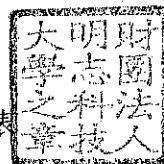 財團法人
明志科技
大學之章